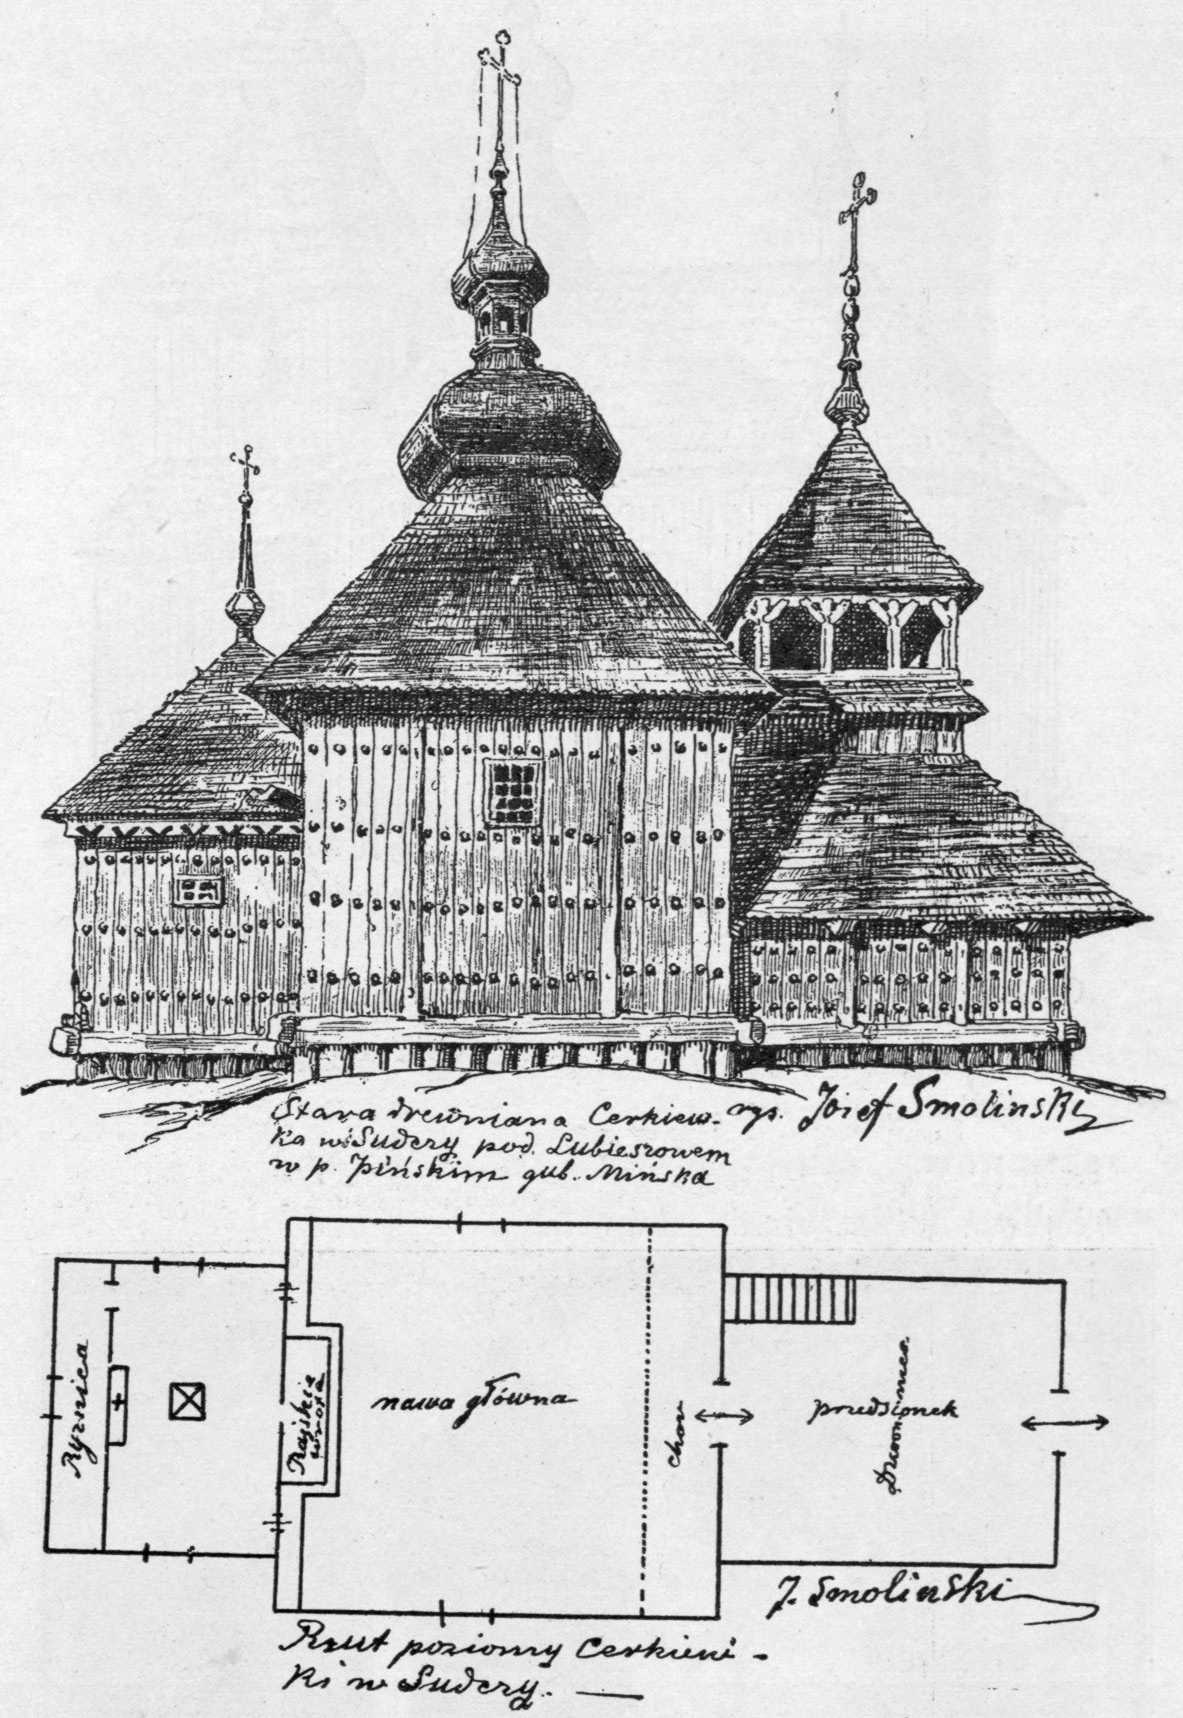 Stara drewniana Cerkiew-
ka w Sudczy pod Lubieszowem
w p. Pińskim gub. Mińska
rys. Józef Smolinski
Ryznica
Rajskie
wrota
nawa główna
chor
przedsionek
Dzwonnica
J. Smolinski
Rzut poziomy Cerkiewi-
ki w Sudczy.